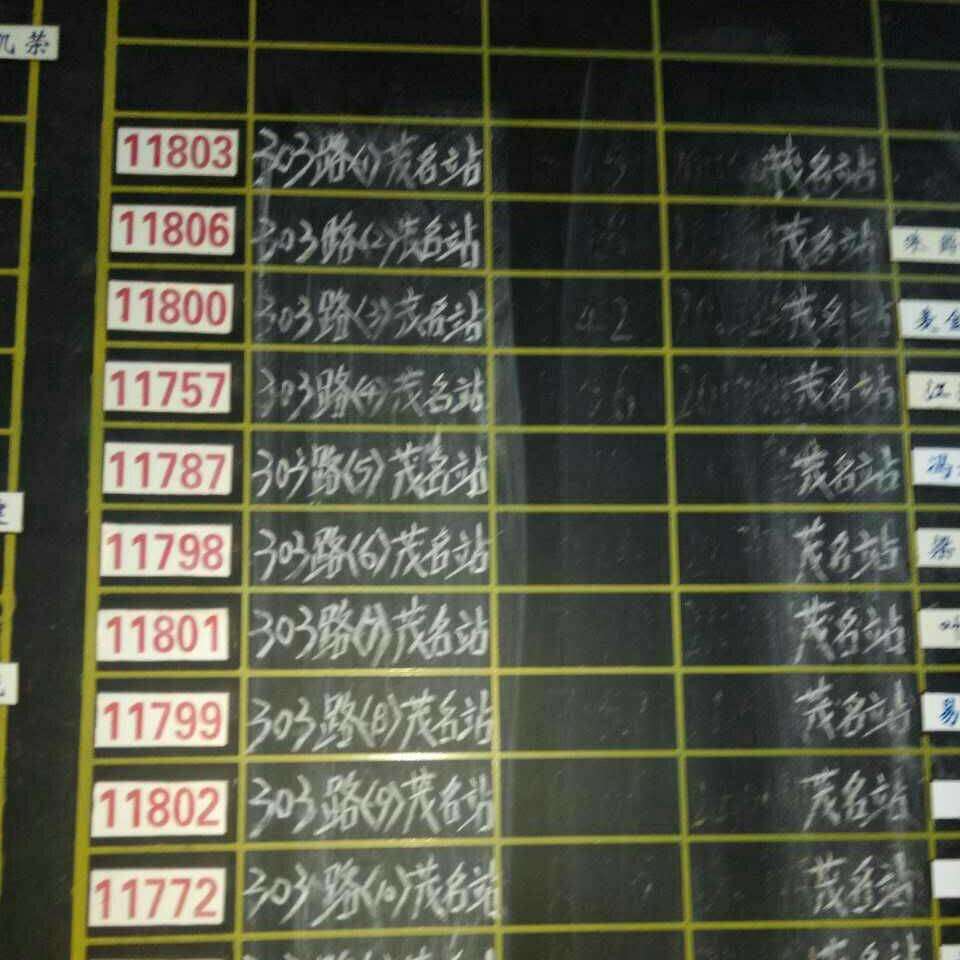 11803 303路(1)茂名站 茂名站
11806 303路(2)茂名站 茂名站
11800 303路(3)茂名站 42 茂名站
11757 303路(4)茂名站 茂名站 江
11787 303路(5)茂名站 茂名站 冯
11798 303路(6)茂名站 茂名站 梁
11801 303路(7)茂名站 茂名站
11799 303路(8)茂名站 茂名站 易
11802 303路(9)茂名站 茂名站
11772 303路(10)茂名站 茂名站